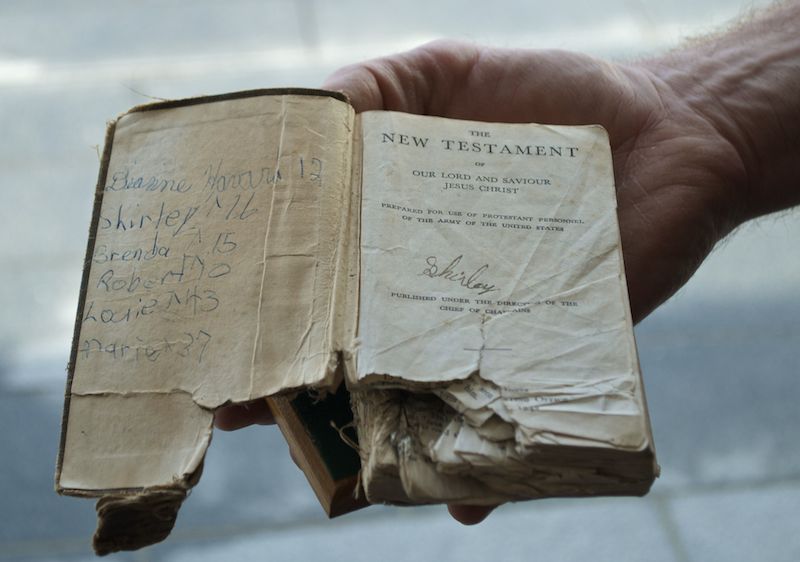 Dianne Havard 12
Shirley " 16
Brenda " 15
Robert " 10
Louie " 43
Marie " 37
THE
NEW TESTAMENT
OF
OUR LORD AND SAVIOUR
JESUS CHRIST
PREPARED FOR USE OF PROTESTANT PERSONNEL
OF THE ARMY OF THE UNITED STATES
Shirley
PUBLISHED UNDER THE DIRECTION OF THE
CHIEF OF CHAPLAINS